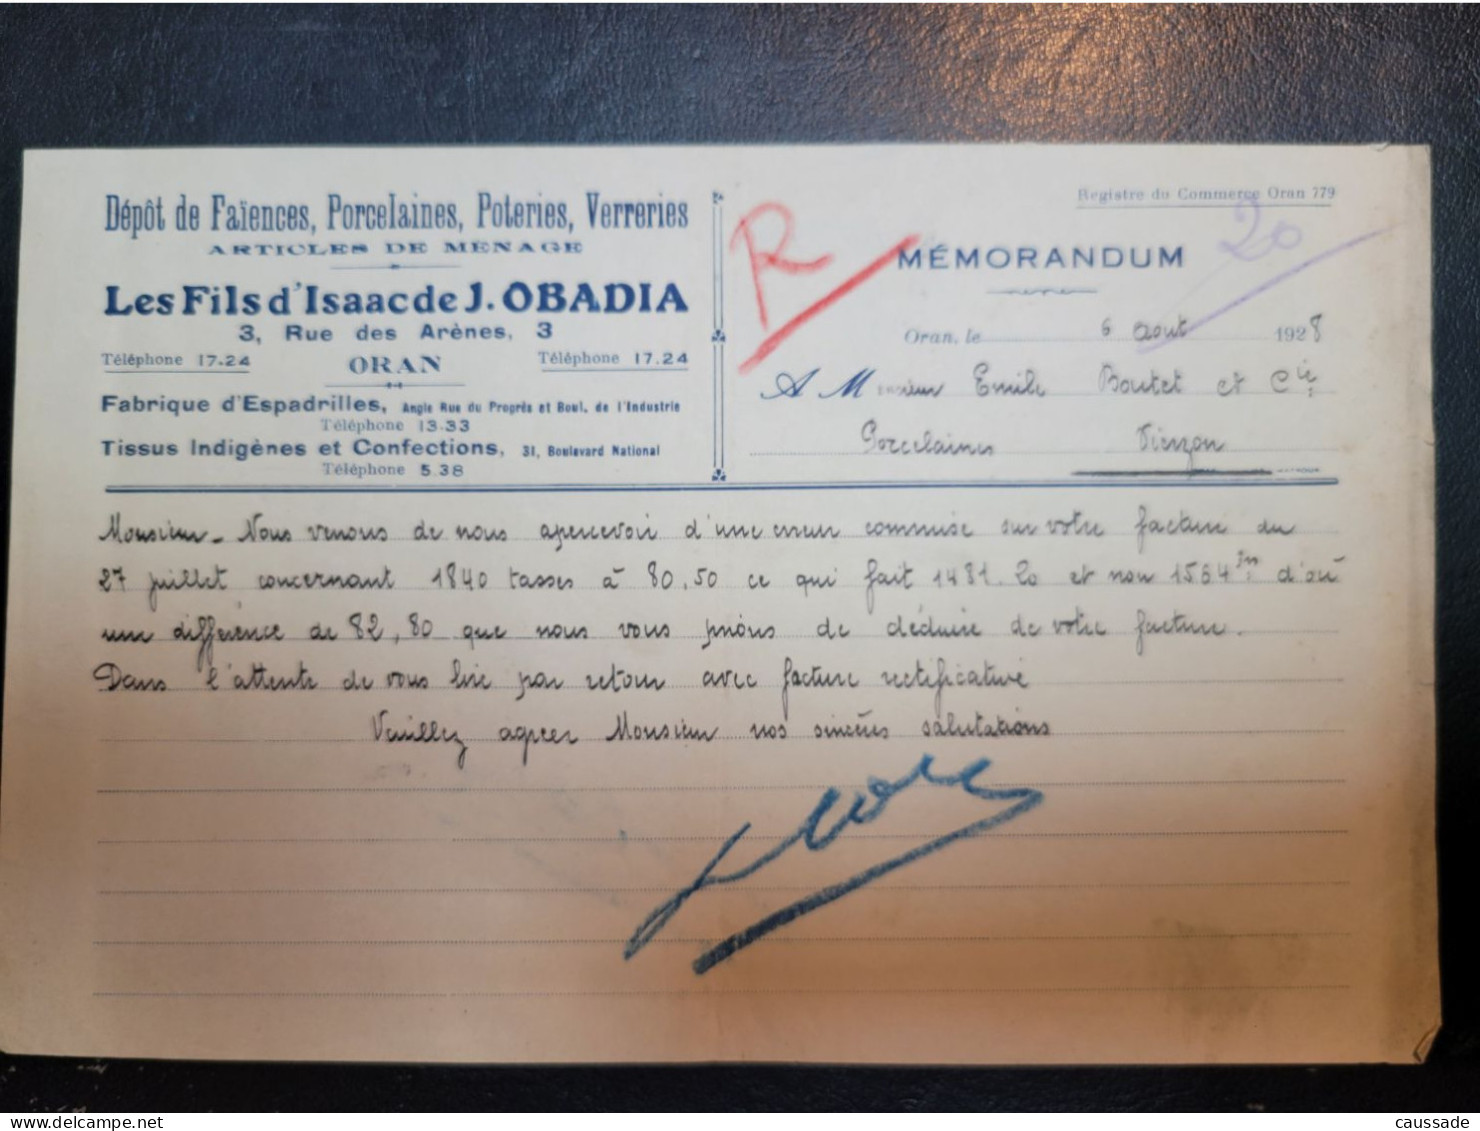 Dépôt de Faïences, Porcelaines, Poteries, Verreries
ARTICLES DE MÉNAGE
Les Fils d'Isaac de J. OBADIA
3, Rue des Arènes, 3
Téléphone 17.24 ORAN Téléphone 17.24
Fabrique d'Espadrilles, Angle Rue du Progrès et Boul. de l'Industrie
Téléphone 13.33
Tissus Indigènes et Confections, 31, Boulevard National
Téléphone 5.38
Registre du Commerce Oran 779
R
20
MÉMORANDUM
Oran, le 6 Aout 1928
A Monsieur Emile Boutet et Cie
Porcelaines Vierzon
Monsieur - Nous venons de nous apercevoir d'une erreur commise sur votre facture du
27 juillet concernant 1840 tasses à 80,50 ce qui fait 1481.20 et non 1564 d'où
une différence de 82,80 que nous vous prions de déduire de votre facture.
Dans l'attente de vous lire par retour avec facture rectificative
Veuillez agreer Monsieur nos sincères salutations
caussade